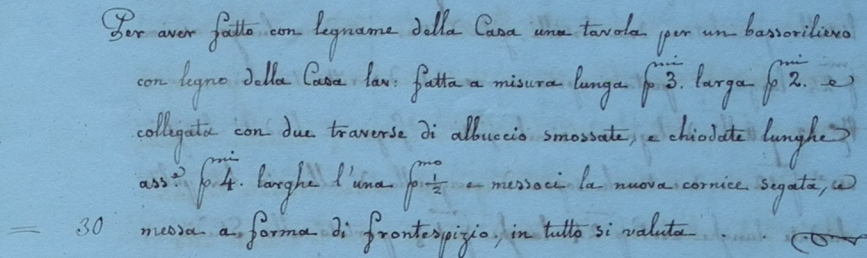 Per aver fatto con legname della Casa una tavola per un bassorilievo
con legno della Casa lav: fatta a misura lunga p.mi 3. larga p.mi 2. e
collegata con due traverse di albuccio smossate, e chiodate lunghe
ass.e p.mi 4. larghe l'una p.mo 1/2 e messoci la nuova cornice segata, e
= 30 messa a forma di frontespizio, in tutto si valuta . .